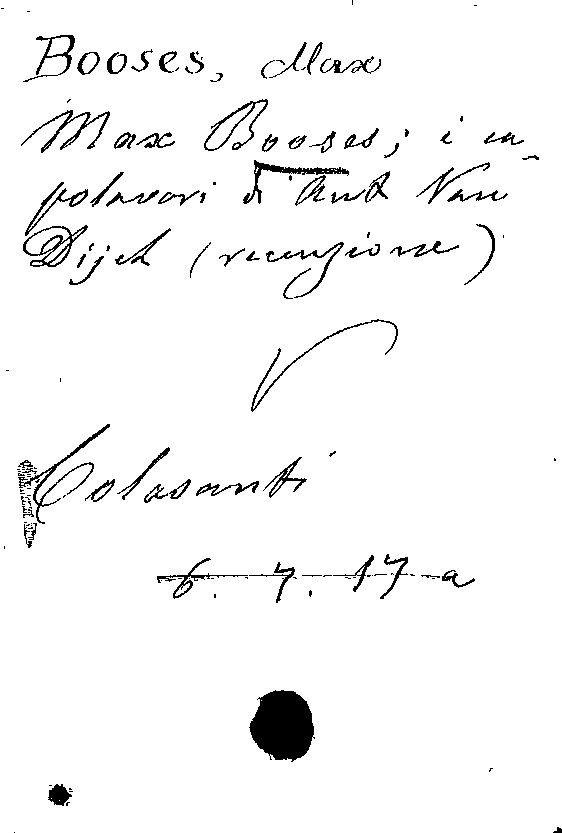 Booses, Max
Max Booses; i ca-
polavori di Ant Van
Dijck (recenzione)
V
Colasanti
6. 7. 17 a